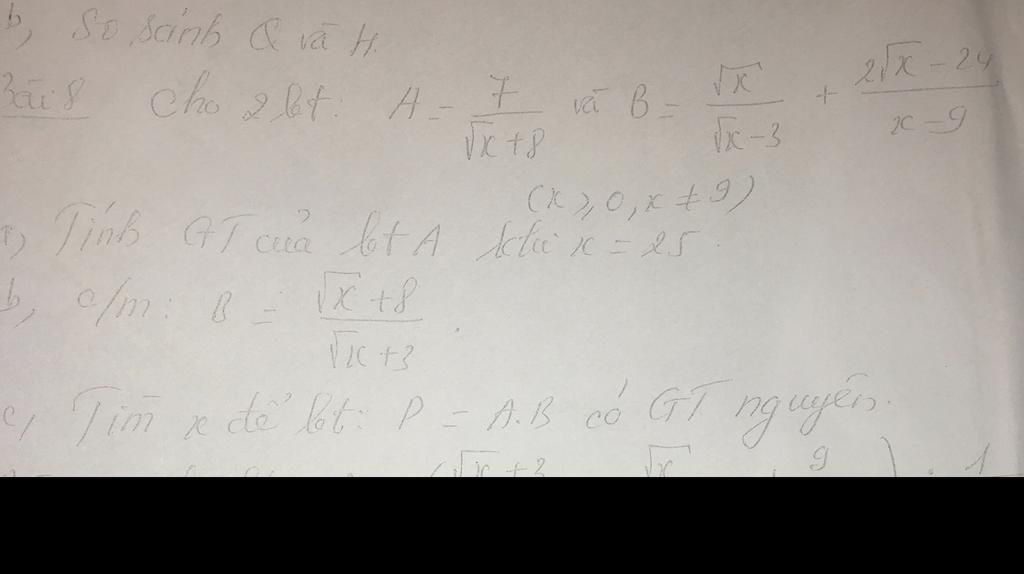 b, So sánh Q và H.
Bài 8 Cho 2 bt: A = 7/(√x + 8) và B = √x/(√x - 3) + (2√x - 24)/(x - 9)
(x ≥ 0, x ≠ 9)
a, Tính GT của bt A khi x = 25.
b, c/m: B = (√x + 8)/(√x + 3).
c, Tìm x để bt: P = A.B có GT nguyên.
(√x + 3 √x 9 ) : 1